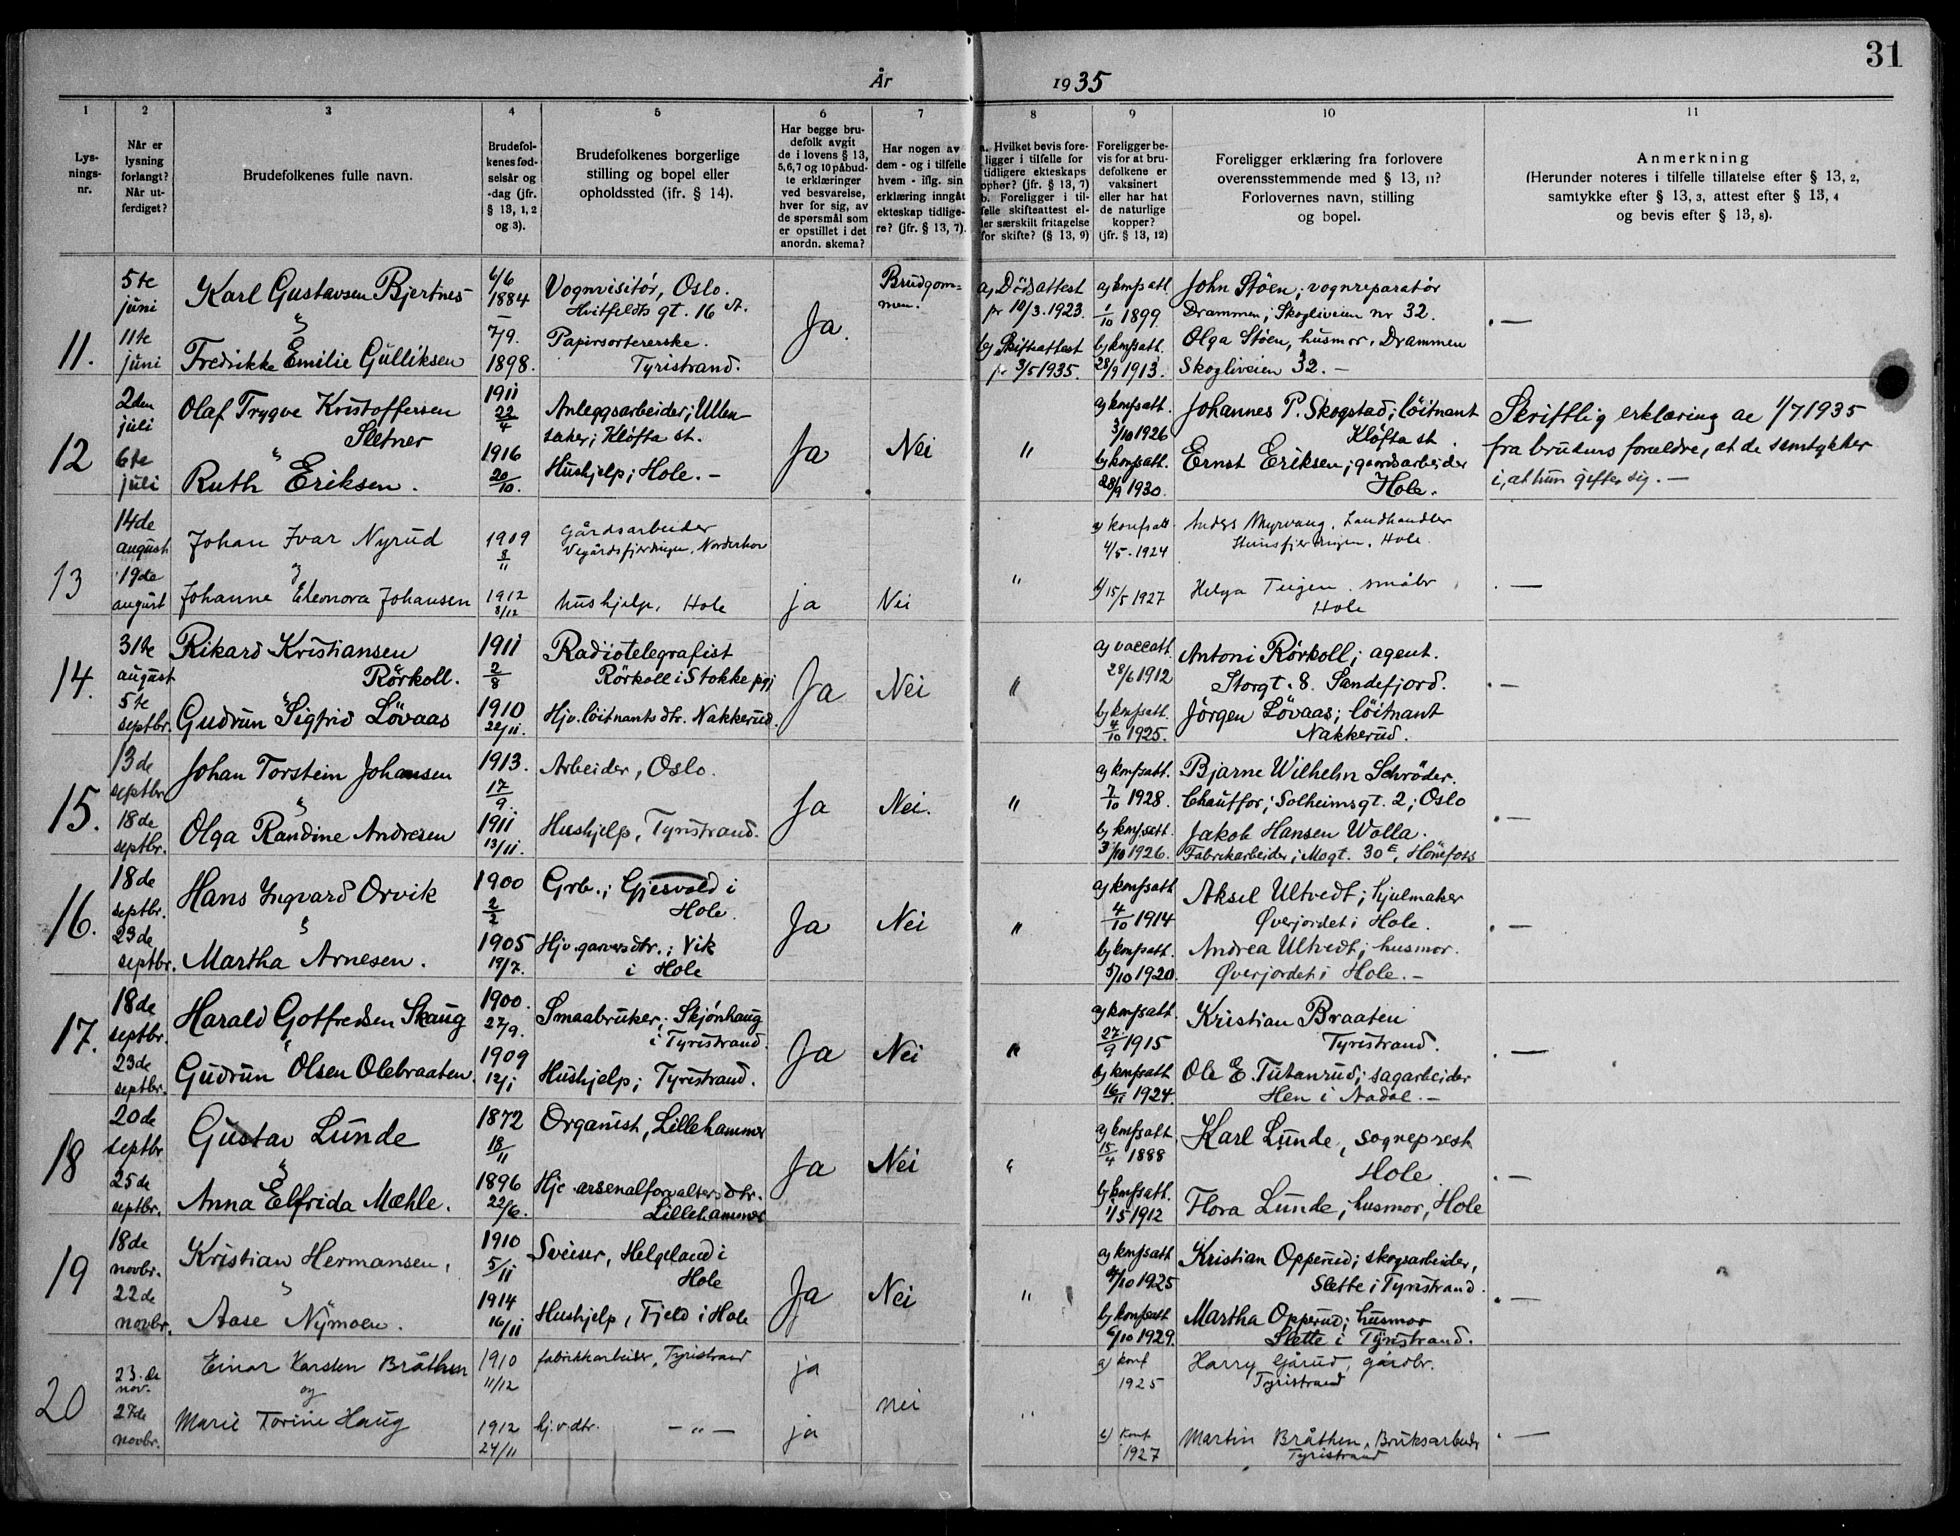 31
År 1935
1 2 3 4 5 6 7 8 9 10 11
Lys-
nings-
nr.
Når er
lysning
forlangt?
Når ut-
ferdiget?
Brudefolkenes fulle navn.
Brudefol-
kenes fød-
selsår og
-dag (jfr.
§ 13, 1, 2
og 3).
Brudefolkenes borgerlige
stilling og bopel eller
opholdssted (ifr. § 14).
Har begge bru-
defolk avgit
de i lovens § 13,
5,6,7 og 10 påbud-
te erklæringer
ved besvarelse,
hver for sig, av
de spørsmål som
er opstillet i det
anordn. skema?
Har nogen av
dem - og i tilfelle
hvem - iflg. sin
erklæring inngåt
ekteskap tidlige-
re? (jfr. § 13, 7).
a. Hvilket bevis fore-
ligger i tilfelle for
tidligere ekteskaps
ophør? (jfr. § 13, 7)
b. Foreligger i til-
felle skifteattest el-
ler særskilt fritagelse
for skifte? (§ 13, 9)
Foreligger be-
vis for at bru-
defolkene er
vaksinert
eller har hat
de naturlige
kopper?
(jfr. § 13, 12)
Foreligger erklæring fra forlovere
overensstemmende med § 13, 11?
Forlovernes navn, stilling
og bopel.
Anmerkning
(Herunder noteres i tilfelle tillatelse efter § 13, 2,
samtykke efter § 13, 3, attest efter § 13, 4
og bevis efter § 13, 8).
11.
5te
juni
11te
juni
Karl Gustavsen Bjertnes
og
Fredrikke Emilie Gulliksen
6/6
1884
7/9.
1898.
Vognvisitør, Oslo.
Hvitfeldts gt. 16 A.
Papirsortererske.
Tyristrand.
Ja.
Brudgom-
men.
a) Dødsattest
pr 10/3. 1923.
b) Skifteattest
pr 3/5 1935.
a) konf.att
1/10 1899.
b) konf.att.
28/9 1913.
John Støen; vognreparatør
Drammen; Skogliveien nr 32.
Olga Støen, husmor, Drammen
Skogliveien 32. —
. —
12
2den
juli
6te
juli
Olaf Trygve Kristoffersen
Sletner
og
Ruth Eriksen.
1911
22/4
1916
20/10.
Anleggsarbeider; Ullen-
saker; Kløfta st.
Hushjelp; Hole. —
Ja
Nei
"
a) konf.att.
3/10 1926
b) konf.att.
28/9 1930.
Johannes P. Skogstad; løitnant
Kløfta st.
Ernst Eriksen; gaardsarbeider
Hole.
Skriftlig erklæring av 1/7 1935
fra brudens forældre, at de samtykker
i, at hun gifter sig. —
13
14de
august
19de
august
Johan Ivar Nyrud
og
Johanne Eleonora Johansen
1909
8/11
1912
8/12
Gårdsarbeider
Vegårdsfjerdingen, Norderhov
hushjelp, Hole
ja
Nei
"
a) konf.att
4/5. 1924
b) 15/5 1927
Anders Myrvang, Landhandler
Steinsfjerdingen, Hole
Helga Teigen, småbr
Hole
. —
14.
31te
august
5te
septbr.
Rikard Kristiansen
Rörkoll.
og
Gudrun Sigfrid Lövaas
1911
2/8
1910
22/11.
Radiotelegrafist
Rörkoll i Stokke pgj
Hjv. løitnantsdtr. Nakkerud.
Ja
Nei
"
a) vaccatt.
28/6 1912
b) konf.att.
4/10 1925.
Antoni Rörkoll; agent.
Storgt. 8. Sandefjord.
Jörgen Lövaas; löitnant
Nakkerud.
. —
15.
13de
septbr.
18de
septbr.
Johan Torstein Johansen
og
Olga Randine Andresen
1913.
17/9.
1911
13/11.
Arbeider, Oslo.
Hushjelp, Tyristrand.
Ja
Nei.
"
a) konf.att.
7/10 1928.
b) konf.att.
3/10 1926.
Bjarne Wilhelm Schröder.
Chauffør; Solheimsgt. 2; Oslo
Jakob Hansen Wolla.
Fabrikarbeider; Mogt. 30E, Hönefoss
. —
16.
18de
septbr.
23de
septbr.
Hans Ingvard Orvik
og
Martha Arnesen.
1900
2/2
1905
19/7.
Grb.; Gjesvold i
Hole.
Hjv. garversdtr.; Vik
i Hole
Ja
Nei
"
a) konf.att.
4/10 1914
b) konf.att.
5/10 1920.
Aksel Ultvedt; hjulmaker
Øverjordet i Hole.
Andrea Ultvedt; husmor.
Øverjordet i Hole. —
. —
17.
18de
septbr.
23de
septbr.
Harald Gotfredsen Skaug
og
Gudrun Olsen Olebraaten.
1900.
27/9.
1909
12/1
Smaabruker; Skjønhaug
i Tyristrand.
Hushjelp; Tyristrand.
Ja
Nei
"
a) konf.att.
27/9 1915
b) konf.att
16/11 1924.
Kristian Braaten
Tyristrand.
Ole E. Tutanrud; sagarbeider
Hen i Aadal. —
. —
18
20de
septbr
25de
septbr.
Gustav Lunde
og
Anna Elfrida Mæhle.
1872
18/11
1896
22/6.
Organist, Lillehammer
Hjv. arsenalforvaltersdtr.
Lillehammer
Ja
Nei
"
a) konf.att.
15/4 1888
b) konf.att.
1/5 1912
Karl Lunde, sogneprest
Hole.
Flora Lunde, husmor, Hole
. —
19
18de
novbr.
22de
novbr.
Kristian Hermansen,
og
Aase Nymoen.
1910
5/11
1914
16/11
Sveiser, Helgeland i
Hole
Hushjelp, Fjeld i Hole
Ja
Nei
"
a) konf.att
4/10 1925
b) konf.att
6/10 1929.
Kristian Opperud; skogsarbeider,
Slette i Tyristrand.
Martha Opperud; husmor
Slette i Tyristrand.
. —
20
23.de
nov.
27de
novbr.
Einar Karsten Bråthen
og
Marie Torine Haug
1910
11/12
1912
24/11
fabrikkarbeider, Tyristrand
hj.v.dtr. — " —
ja
ja
nei
"
a) konf
1925
b) konf
1927
Harry Gårud, gårdbr.
Tyristrand
Martin Bråthen, Bruksarbeider
Tyristrand
. —